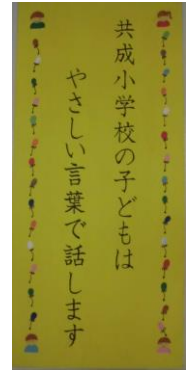 共成小学校の子どもは
やさしい言葉で話します